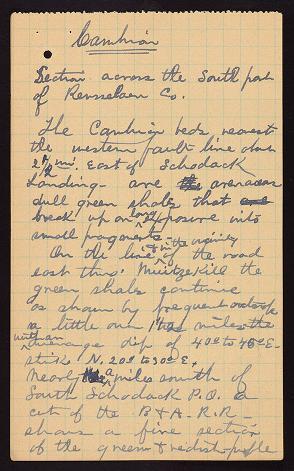 Cambrian
Section across the South part
of Rensselaer Co.
The Cambrian beds nearest
the western fault line down
2 1/2 mi. East of Schodack
Landing - are the arenaceous
dull green shales that are
break up on long exposure into
small fragments.
On the line & in the vicinity of the road
east thro' Muitzeskill the
green shale continue
as shown by frequent outcrops
a little over 1 miles the
with an average dip of 40° to 45° E.
strike N. 20° to 30° E.
Nearly a miles south of
South Schodack P.O. a
cut of the B & A. R.R.
shows a fine section
of the green & reddish purple